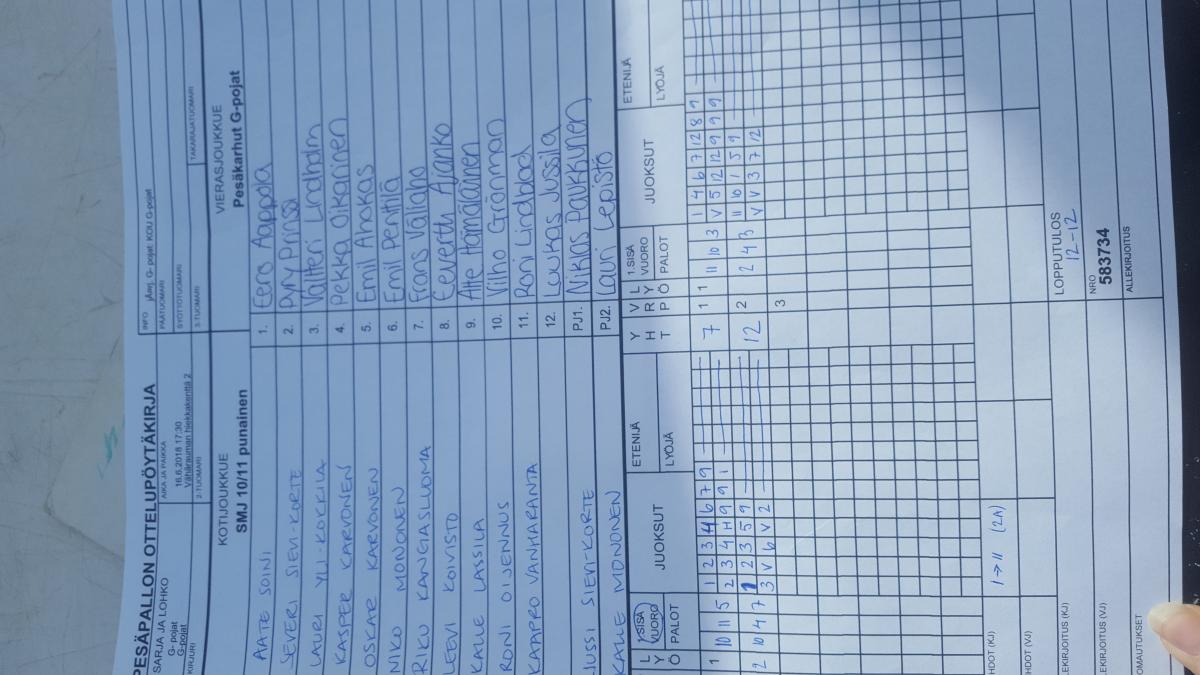 PESÄPALLON OTTELUPÖYTÄKIRJA
SARJA JA LOHKO
G- pojat
G-pojat
KIRJURI
AIKA JA PAIKKA
16.6.2018 17:30
Vähärauman hiekkakenttä 2
2-TUOMARI
INFO jAmj. G- pojat: KOU G-pojat
PÄÄTUOMARI
SYÖTTÖTUOMARI
3-TUOMARI
TAKARAJATUOMARI
KOTIJOUKKUE
SMJ 10/11 punainen
VIERASJOUKKUE
Pesäkarhut G-pojat
AATE SOINI 1. Eero Aappola
SEVERI SIEVI-KORTE 2. Pyry Prinssi
LAURI YLI-KOKKILA 3. Valtteri Lindholm
KASPER KARVONEN 4. Pekka Oikarinen
OSKAR KARVONEN 5. Emil Ahokas
NIKO MONONEN 6. Emil Penttilä
RIKU KANGIASLUOMA 7. Frans Vallaho
LEEVI KOIVISTO 8. Eeverth Ajanko
KALLE LASSILA 9. Atte Hämäläinen
RONI OIJENNUS 10. Vilho Grönman
KAAPRO VANHARANTA 11. Roni Lindblad
12. Luukas Jussila
JUSSI SIEVI-KORTE PJ1. Niklas Paukkunen
KALLE MONONEN PJ2. Lauri Lepistö
L Y Ö 1.SISÄ VUORO PALOT JUOKSUT ETENIJÄ LYÖJÄ Y H T V R P L Y Ö 1.SISÄ VUORO PALOT JUOKSUT ETENIJÄ LYÖJÄ
1 10 11 5 1 2 3 4 6 7 9 7 1 1 11 10 3 1 4 6 7 12 8 9
2 3 4 H 9 9 1 V 5 12 12 9 9 9
2 10 4 7 1 2 3 5 9 12 2 2 4 3 11 10 1 5 9
3 V 6 V 2 V V 3 7 12
3
HDOT (KJ) 1→11 (2A)
HDOT (VJ)
LOPPUTULOS
12-12
LEKIRJOITUS (KJ)
NRO
583734
LEKIRJOITUS (VJ)
ALLEKIRJOITUS
OMAUTUKSET